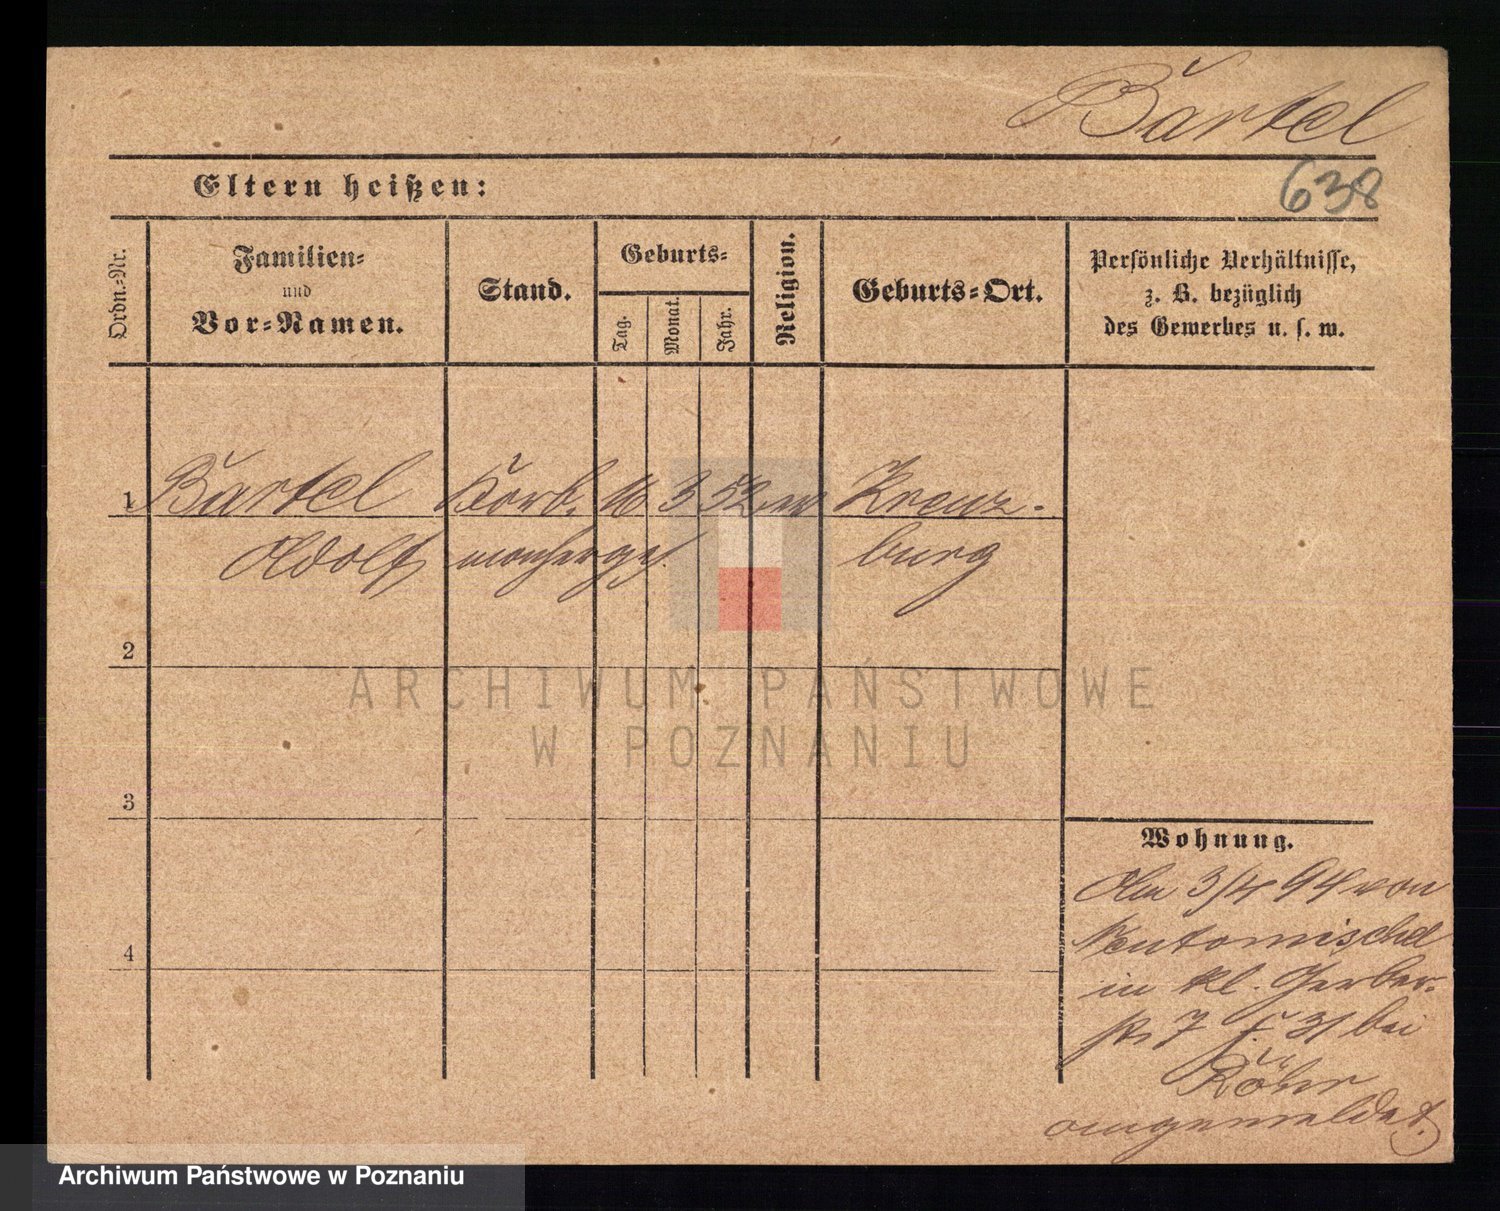 Bartel
638
Eltern heißen:
Ordn.-Nr.
Familien-
und
Vor-Namen.
Stand.
Geburts-
Tag.
Monat.
Jahr.
Religion.
Geburts-Ort.
Persönliche Verhältnisse,
z. B. bezüglich
des Gewerbes u. s. w.
1 Bartel Korb. 16 3 52 Kreuz-
Adolf machergs. burg
2
3
4
Wohnung.
Am 3/4 94 von
Neutomischel
in kl. Gerber-
str 7 f. 31 bei
Röhr
angemeldet.
ARCHIWUM PAŃSTWOWE
W POZNANIU
Archiwum Państwowe w Poznaniu